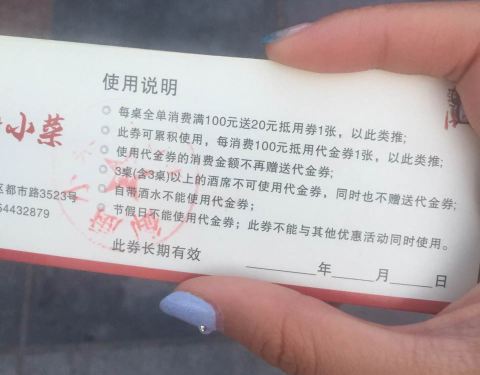 使用说明
小菜
每桌全单消费满100元送20元抵用券1张，以此类推;
此券可累积使用，每消费100元抵用代金券1张，以此类推;
使用代金券的消费金额不再赠送代金券;
3桌(含3桌)以上的酒席不可使用代金券，同时也不赠送代金券;
自带酒水不能使用代金券;
节假日不能使用代金券；此券不能与其他优惠活动同时使用。
此券长期有效
年 月 日
区都市路3523号
54432879